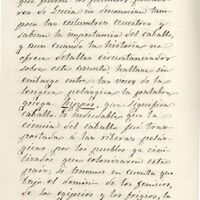 que
de Grecia no denuncian tam-
poco las costumbres ecuestres y
sabian la importancia del caballo,
y aun cuando la historia no
ofrece detalles circunstanciados
sobre este asunto, hallase sin
embargo entre las voces de la
lengua pelasgica la palabra
griega que significa
caballo. Es indudable que la
ciencia del caballo fué tras-
portada a las riberas pelas-
gicas por los pueblos ya civi-
lizados que colonizaron este
pais; si tenemos en cuenta que
bajo el dominio de los fenicios,
de los egipcios y los frigios, la